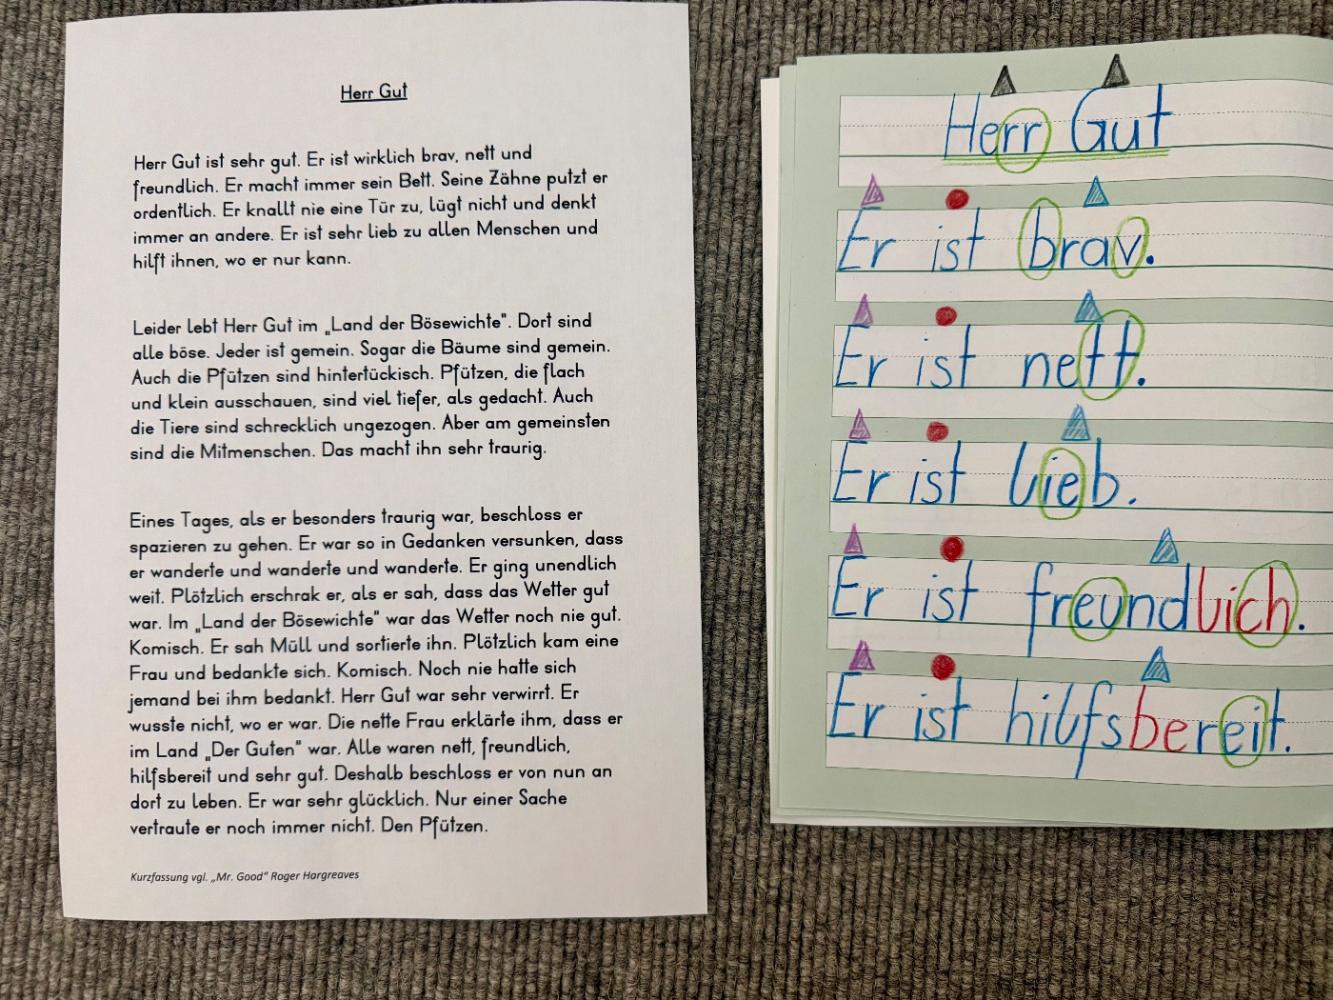 Herr Gut
Herr Gut ist sehr gut. Er ist wirklich brav, nett und
freundlich. Er macht immer sein Bett. Seine Zähne putzt er
ordentlich. Er knallt nie eine Tür zu, lügt nicht und denkt
immer an andere. Er ist sehr lieb zu allen Menschen und
hilft ihnen, wo er nur kann.
Leider lebt Herr Gut im „Land der Bösewichte". Dort sind
alle böse. Jeder ist gemein. Sogar die Bäume sind gemein.
Auch die Pfützen sind hintertückisch. Pfützen, die flach
und klein ausschauen, sind viel tiefer, als gedacht. Auch
die Tiere sind schrecklich ungezogen. Aber am gemeinsten
sind die Mitmenschen. Das macht ihn sehr traurig.
Eines Tages, als er besonders traurig war, beschloss er
spazieren zu gehen. Er war so in Gedanken versunken, dass
er wanderte und wanderte und wanderte. Er ging unendlich
weit. Plötzlich erschrak er, als er sah, dass das Wetter gut
war. Im „Land der Bösewichte" war das Wetter noch nie gut.
Komisch. Er sah Müll und sortierte ihn. Plötzlich kam eine
Frau und bedankte sich. Komisch. Noch nie hatte sich
jemand bei ihm bedankt. Herr Gut war sehr verwirrt. Er
wusste nicht, wo er war. Die nette Frau erklärte ihm, dass er
im Land „Der Guten" war. Alle waren nett, freundlich,
hilfsbereit und sehr gut. Deshalb beschloss er von nun an
dort zu leben. Er war sehr glücklich. Nur einer Sache
vertraute er noch immer nicht. Den Pfützen.
Kurzfassung vgl. „Mr. Good" Roger Hargreaves
Herr Gut
Er ist brav.
Er ist nett.
Er ist lieb.
Er ist freundlich.
Er ist hilfsbereit.